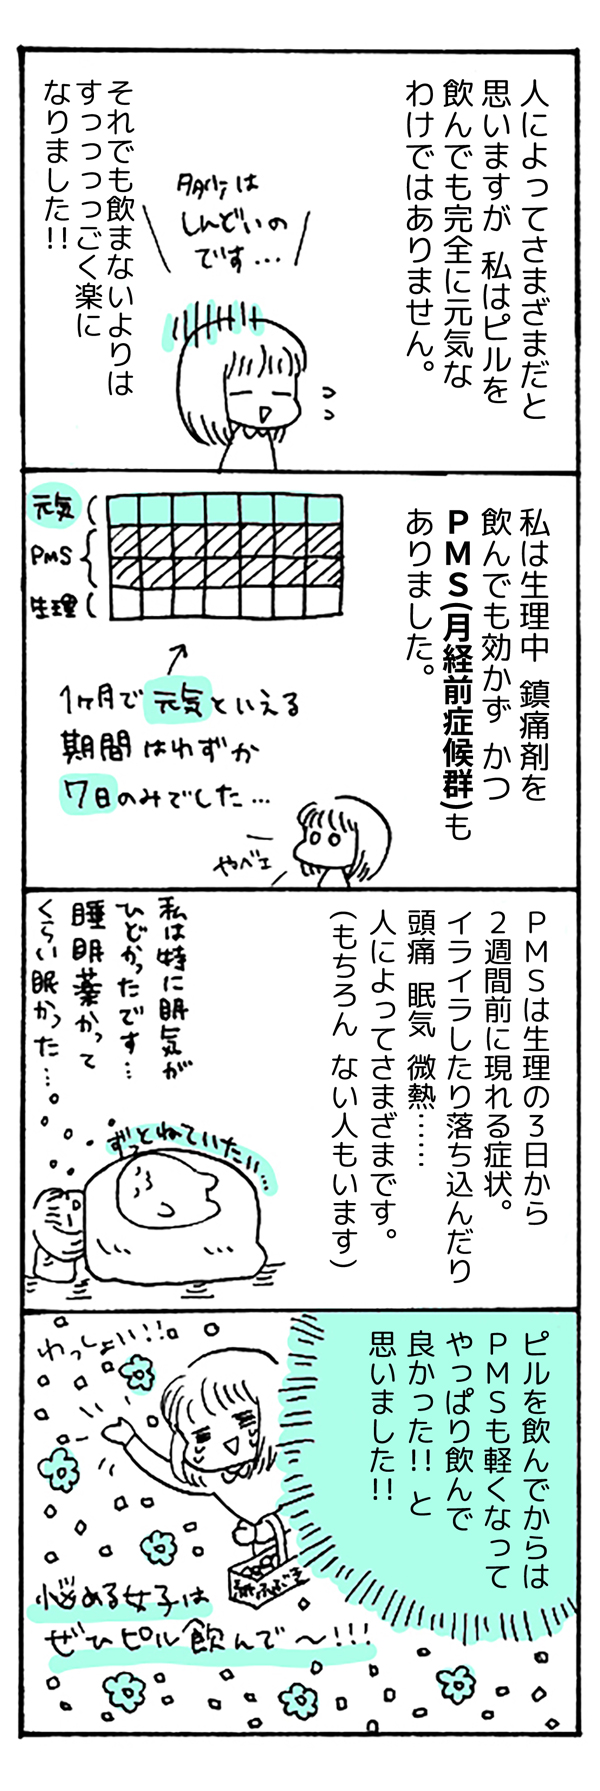 人によってさまざまだと
思いますが 私はピルを
飲んでも完全に元気な
わけではありません。
しんどいの
です…
それでも飲まないよりは
すっっっっごく楽に
なりました!!
私は生理中 鎮痛剤を
飲んでも効かず かつ
PMS(月経前症候群)も
ありました。
元気
PMS
生理
1ヶ月で元気といえる
期間はわずか
7日のみでした…
やべェ
PMSは生理の3日から
2週間前に現れる症状。
イライラしたり落ち込んだり
頭痛 眠気 微熱……
人によってさまざまです。
(もちろん ない人もいます)
私は特に眠気が
ひどかったです…
睡眠薬かって
くらい眠かった…
ずっとねていたい…
ピルを飲んでからは
PMSも軽くなって
やっぱり飲んで
良かった!! と
思いました!!
わっしょい!!
紙ふぶき
悩める女子は
ぜひピル飲んで〜!!!